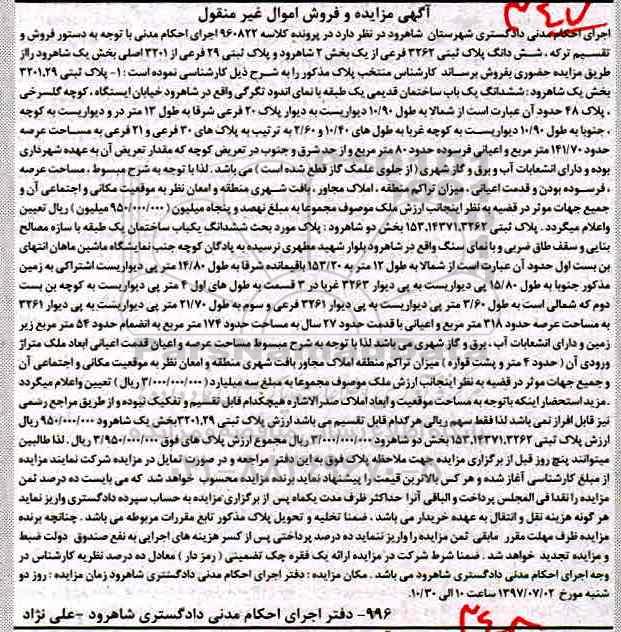 آگهی مزایده و فروش اموال غیر منقول
اجرای احکام مدنی دادگستری شهرستان شاهرود در نظر دارد در پرونده کلاسه ۹۶۰۸۲۲ اجرای احکام مدنی با توجه به دستور فروش و
تقسیم ترکه ، شش دانگ پلاک ثبتی ۳۲۶۲ فرعی از یک بخش ۲ شاهرود و پلاک ثبتی ۲۹ فرعی از ۳۲۰۱ اصلی بخش یک شاهرود رااز
طریق مزایده حضوری بفروش برساند کارشناس منتخب پلاک مذکور را به شرح ذیل کارشناسی نموده است : ۱- پلاک ثبتی ۳۲۰۱،۲۹
بخش یک شاهرود : ششدانگ یک باب ساختمان قدیمی یک طبقه با نمای اندود تگرگی واقع در شاهرود خیابان ایستگاه ، کوچه گلسرخی
، پلاک ۴۸ حدود آن عبارت است از شمالا به طول ۱۰/۹۰ دیواریست به دیوار پلاک ۲۰ فرعی شرقا به طول ۱۳ متر در و دیواریست به کوچه
، جنوبا به طول ۱۰/۹۰ دیواریست به کوچه غربا به طول های ۱۰/۴۰ و ۲/۶۰ به ترتیب به پلاک های ۳۰ فرعی و ۲۱ فرعی به مساحت عرصه
حدود ۱۴۱/۷۰ متر مربع و اعیانی فرسوده حدود ۸۰ متر مربع و از حد شرق و جنوب در تعریض کوچه که مقدار تعریض آن به عهده شهرداری
بوده و دارای انشعابات آب و برق و گاز شهری ( از جلوی علمک گاز قطع شده است ) می باشد . لذا با توجه به شرح مبسوط ، مساحت عرصه
، فرسوده بودن و قدمت اعیانی ، میزان تراکم منطقه ، املاک مجاور ، بافت شهری منطقه و امعان نظر به موقعیت مکانی و اجتماعی آن و
جمیع جهات موثر در قضیه به نظر اینجانب ارزش ملک موصوف مجموعا به مبلغ نهصد و پنجاه میلیون ( ۹۵۰/۰۰۰/۰۰۰ میلیون ) ریال تعیین
واعلام میگردد . پلاک ثبتی ۱۵۳،۱۴۳۷۱،۳۲۶۲ بخش دو شاهرود : پلاک مورد بحث ششدانگ یکباب ساختمان یک طبقه با سازه مصالح
بنایی و سقف طاق ضربی و با نمای سنگ واقع در شاهرود بلوار شهید مطهری نرسیده به پادگان کوچه جنب نمایشگاه ماشین ماهان انتهای
بن بست اول حدود آن عبارت است از شمالا به طول ۱۲ متر به ۱۵۳/۲۰ باقیمانده شرقا به طول ۱۴/۸۰ متر پی دیواریست اشتراکی به زمین
مذکور جنوبا به طول ۱۵/۸۰ پی دیواریست به پی دیوار ۳۲۶۳ غربا در ۳ قسمت به طول های اول ۴ متر پی دیواریست به کوچه بن بست
دوم که شمالی است به طول ۳/۶۰ متر پی دیواریست به پی دیوار ۳۲۶۱ فرعی و سوم به طول ۲۱/۷۰ متر پی دیواریست به پی دیوار ۳۲۶۱
به مساحت عرصه حدود ۳۱۸ متر مربع و اعیانی با قدمت حدود ۲۷ سال به مساحت حدود ۱۷۴ متر مربع به انضمام حدود ۵۴ متر مربع زیر
زمین و دارای انشعابات آب ، برق و گاز شهری می باشد لذا با توجه به شرح مبسوط مساحت عرصه و اعیان قدمت اعیانی ابعاد ملک متراژ
ورودی آن ( حدود ۴ متر و پشت قواره ) میزان تراکم منطقه املاک مجاور بافت شهری منطقه و امعان نظر به موقعیت مکانی و اجتماعی آن
و جمیع جهات موثر در قضیه به نظر اینجانب ارزش ملک موصوف مجموعا به مبلغ سه میلیارد ( ۳/۰۰۰/۰۰۰/۰۰۰ ریال ) تعیین واعلام میگردد
. مزید استحضار اینکه باتوجه به مساحت موقعیت و ابعاد املاک صدرالاشاره هیچکدام قابل تقسیم و تفکیک نبوده و از طریق مراجع رسمی
نیز قابل افراز نمی باشد لذا فقط سهم ریالی هر کدام قابل تقسیم می باشد ارزش پلاک ثبتی ۳۲۰۱،۲۹ بخش یک شاهرود ۹۵۰/۰۰۰/۰۰۰ ریال
ارزش پلاک ثبتی ۱۵۳،۱۴۳۷۱،۳۲۶۲ بخش دو شاهرود ۳/۰۰۰/۰۰۰/۰۰۰ ریال مجموع ارزش پلاک های فوق ۳/۹۵۰/۰۰۰/۰۰۰ ریال . لذا طالبین
میتوانند پنج روز قبل از برگزاری مزایده جهت ملاحظه پلاک فوق به این دفتر مراجعه و در صورت تمایل در مزایده شرکت نمایند مزایده
از مبلغ کارشناسی آغاز شده و هر کس بالاترین قیمت را پیشنهاد نماید برنده مزایده محسوب خواهد شد که می بایست ده درصد ثمن
مزایده را نقدا فی المجلس پرداخت و الباقی آنرا حداکثر ظرف مدت یکماه پس از برگزاری مزایده به حساب سپرده دادگستری واریز نماید
هر گونه هزینه نقل و انتقال به عهده خریدار می باشد . ضمنا تخلیه و تحویل پلاک مذکور تابع مقررات مربوطه می باشد . چنانچه برنده
مزایده ظرف مهلت مقرر مابقی ثمن مزایده را واریز ننماید ده درصد پرداختی پس از کسر هزینه های اجرایی به نفع صندوق دولت ضبط
و مزایده تجدید خواهد شد . ضمنا شرط شرکت در مزایده ارائه یک فقره چک تضمینی ( رمز دار ) معادل ده درصد نظریه کارشناس در
وجه اجرای احکام مدنی دادگستری شاهرود می باشد . مکان مزایده : دفتر اجرای احکام مدنی دادگستری شاهرود زمان مزایده : روز دو
شنبه مورخ ۱۳۹۷/۰۷/۰۲ ساعت ۱۰ الی ۱۰/۳۰.
۹۹۶- دفتر اجرای احکام مدنی دادگستری شاهرود -علی نژاد